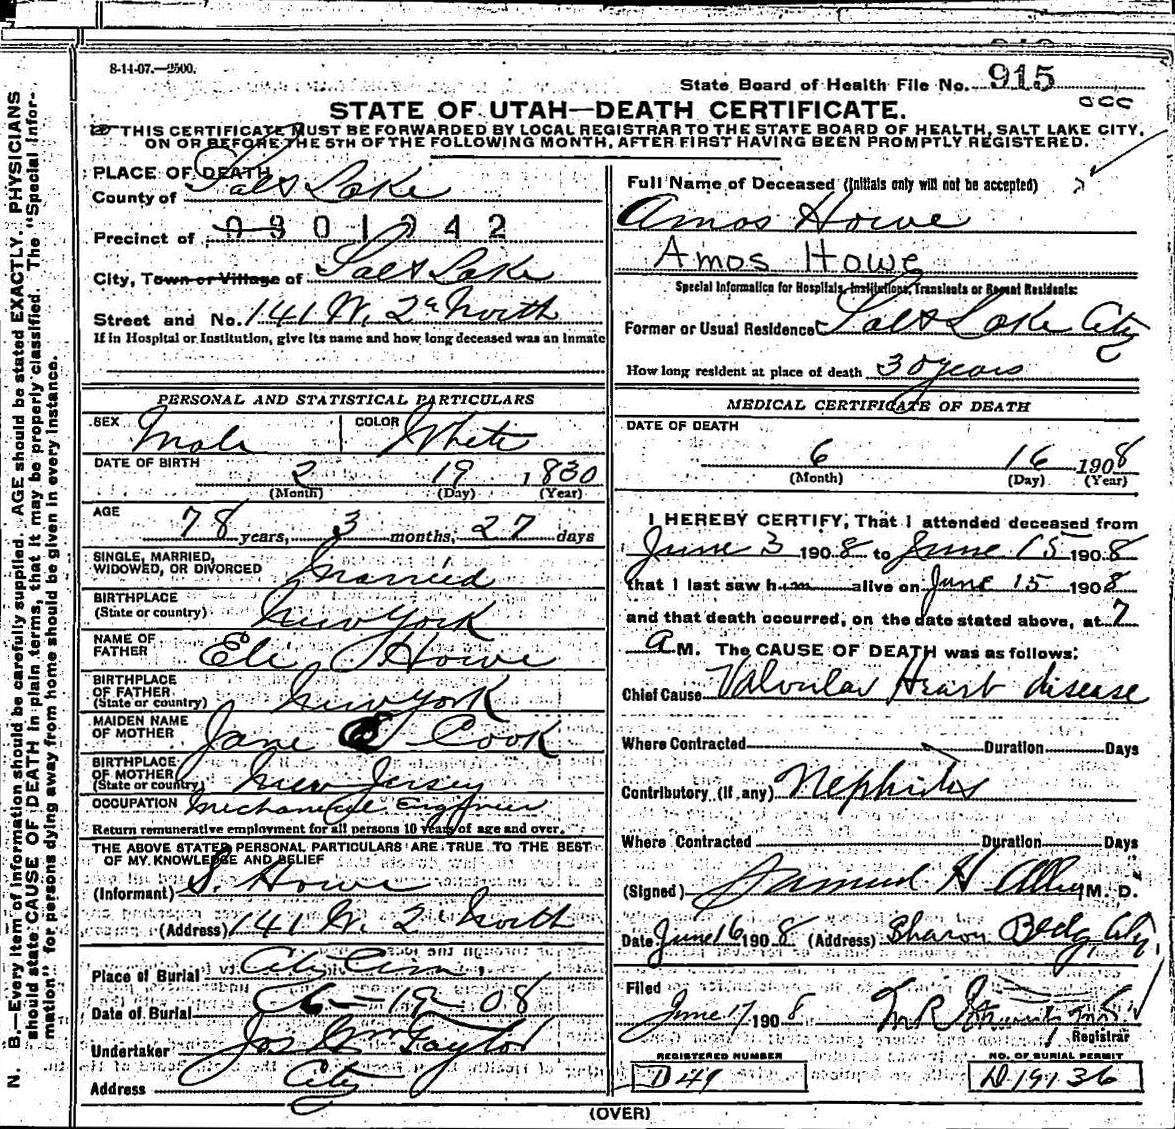 8-11-07.—2500.
State Board of Health File No. 915
STATE OF UTAH—DEATH CERTIFICATE.
THIS CERTIFICATE MUST BE FORWARDED BY LOCAL REGISTRAR TO THE STATE BOARD OF HEALTH, SALT LAKE CITY,
ON OR BEFORE THE 5TH OF THE FOLLOWING MONTH, AFTER FIRST HAVING BEEN PROMPTLY REGISTERED.
PLACE OF DEATH
County of Salt Lake
Precinct of
City, Town or Village of Salt Lake
Street and No. 141 W. 2d North
If in Hospital or Institution, give its name and how long deceased was an inmate
PERSONAL AND STATISTICAL PARTICULARS
SEX Male COLOR White
DATE OF BIRTH 2 19 1830
(Month) (Day) (Year)
AGE
78 years, 3 months, 27 days
SINGLE, MARRIED,
WIDOWED, OR DIVORCED Married
BIRTHPLACE
(State or country) New York
NAME OF
FATHER Eli Howe
BIRTHPLACE
OF FATHER
(State or country) New York
MAIDEN NAME
OF MOTHER Jane Cook
BIRTHPLACE
OF MOTHER
(State or country) New Jersey
OCCUPATION Mechanical Engineer
Return remunerative employment for all persons 10 years of age and over.
THE ABOVE STATED PERSONAL PARTICULARS ARE TRUE TO THE BEST
OF MY KNOWLEDGE AND BELIEF
(Informant) S. Howe
(Address) 141 W. 2 North
Place of Burial City Cem.
Date of Burial 6-19-08
Undertaker Jos Wm Taylor
Address City
Full Name of Deceased (Initials only will not be accepted)
Amos Howe
Amos Howe
Special Information for Hospitals, Institutions, Transients or Recent Residents:
Former or Usual Residence Salt Lake City
How long resident at place of death 30 years
MEDICAL CERTIFICATE OF DEATH
DATE OF DEATH
6 16 1908
(Month) (Day) (Year)
I HEREBY CERTIFY, That I attended deceased from
June 3 1908 to June 15 1908
that I last saw him alive on June 15 1908
and that death occurred, on the date stated above, at 7
A M. The CAUSE OF DEATH was as follows:
Chief Cause Valvular Heart disease
Where Contracted Duration Days
Contributory (if any) Nephritis
Where Contracted Duration Days
(Signed) Samuel H Allen M. D.
Date June 16 1908 (Address) Sharon Bldg, City
Filed
June 17 1908
Registrar
REGISTERED NUMBER
D 49
NO. OF BURIAL PERMIT
D 19136
(OVER)
N. B.—Every item of information should be carefully supplied. AGE should be stated EXACTLY. PHYSICIANS
should state CAUSE OF DEATH in plain terms, that it may be properly classified. The "Special Infor-
mation" for persons dying away from home should be given in every instance.